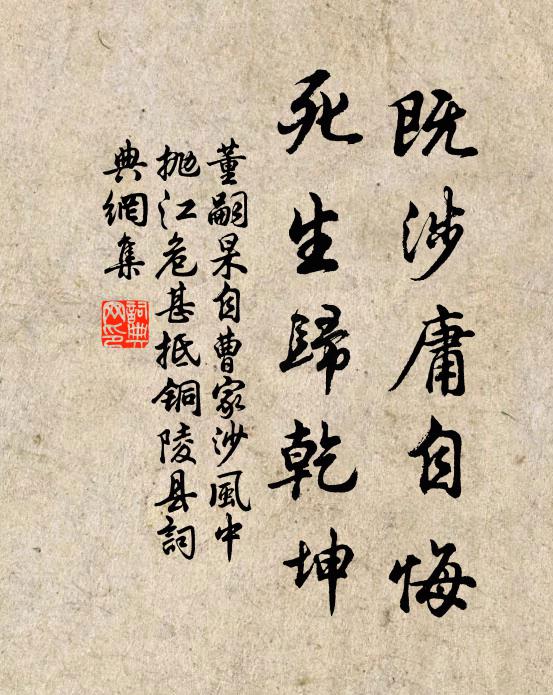 既涉庸自悔
死生歸乾坤
董嗣杲自曹家沙風中
拋江危甚抵銅陵县詞
典網集
詞典
网印